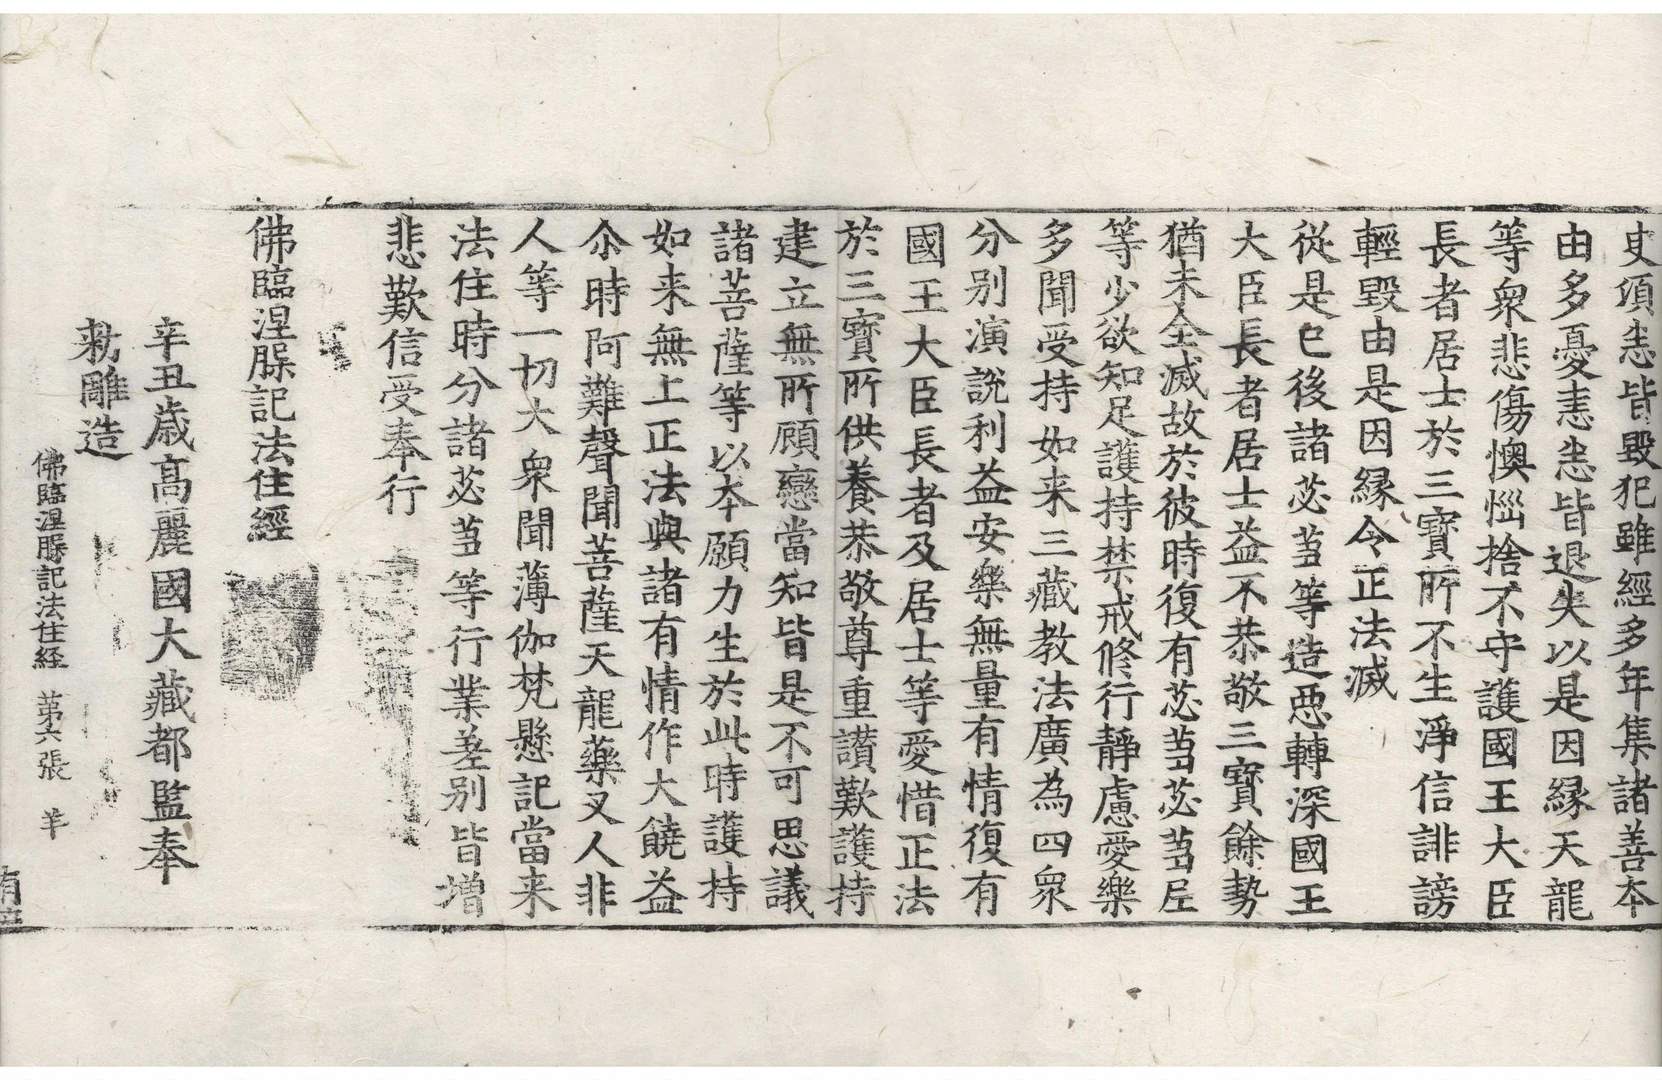 史須恚皆毀犯雖經多年集諸善本
由多憂恚恚皆退失以是因緣天龍
等衆悲傷懊惱捨不守護國王大臣
長者居士於三寶所不生淨信誹謗
輕毀由是因緣令正法滅
從是已後諸苾芻等造惡轉深國王
大臣長者居士益不恭敬三寶餘勢
猶未全滅故於彼時復有苾芻苾芻尼
等少欲知足護持禁戒修行靜慮愛樂
多聞受持如来三藏教法廣為四衆
分别演說利益安樂無量有情復有
國王大臣長者及居士等愛惜正法
於三寶所供養恭敬尊重讃歎護持
建立無所顧戀當知皆是不可思議
諸菩薩等以本願力生於此時護持
如来無上正法與諸有情作大饒益
尒時阿難聲聞菩薩天龍藥叉人非
人等一切大衆聞薄伽梵懸記當来
法住時分諸苾芻等行業差别皆增
悲歎信受奉行
佛臨涅槃記法住經
辛丑歲高麗國大藏都監奉
勑雕造
佛臨涅槃記法住経 第六張 羊